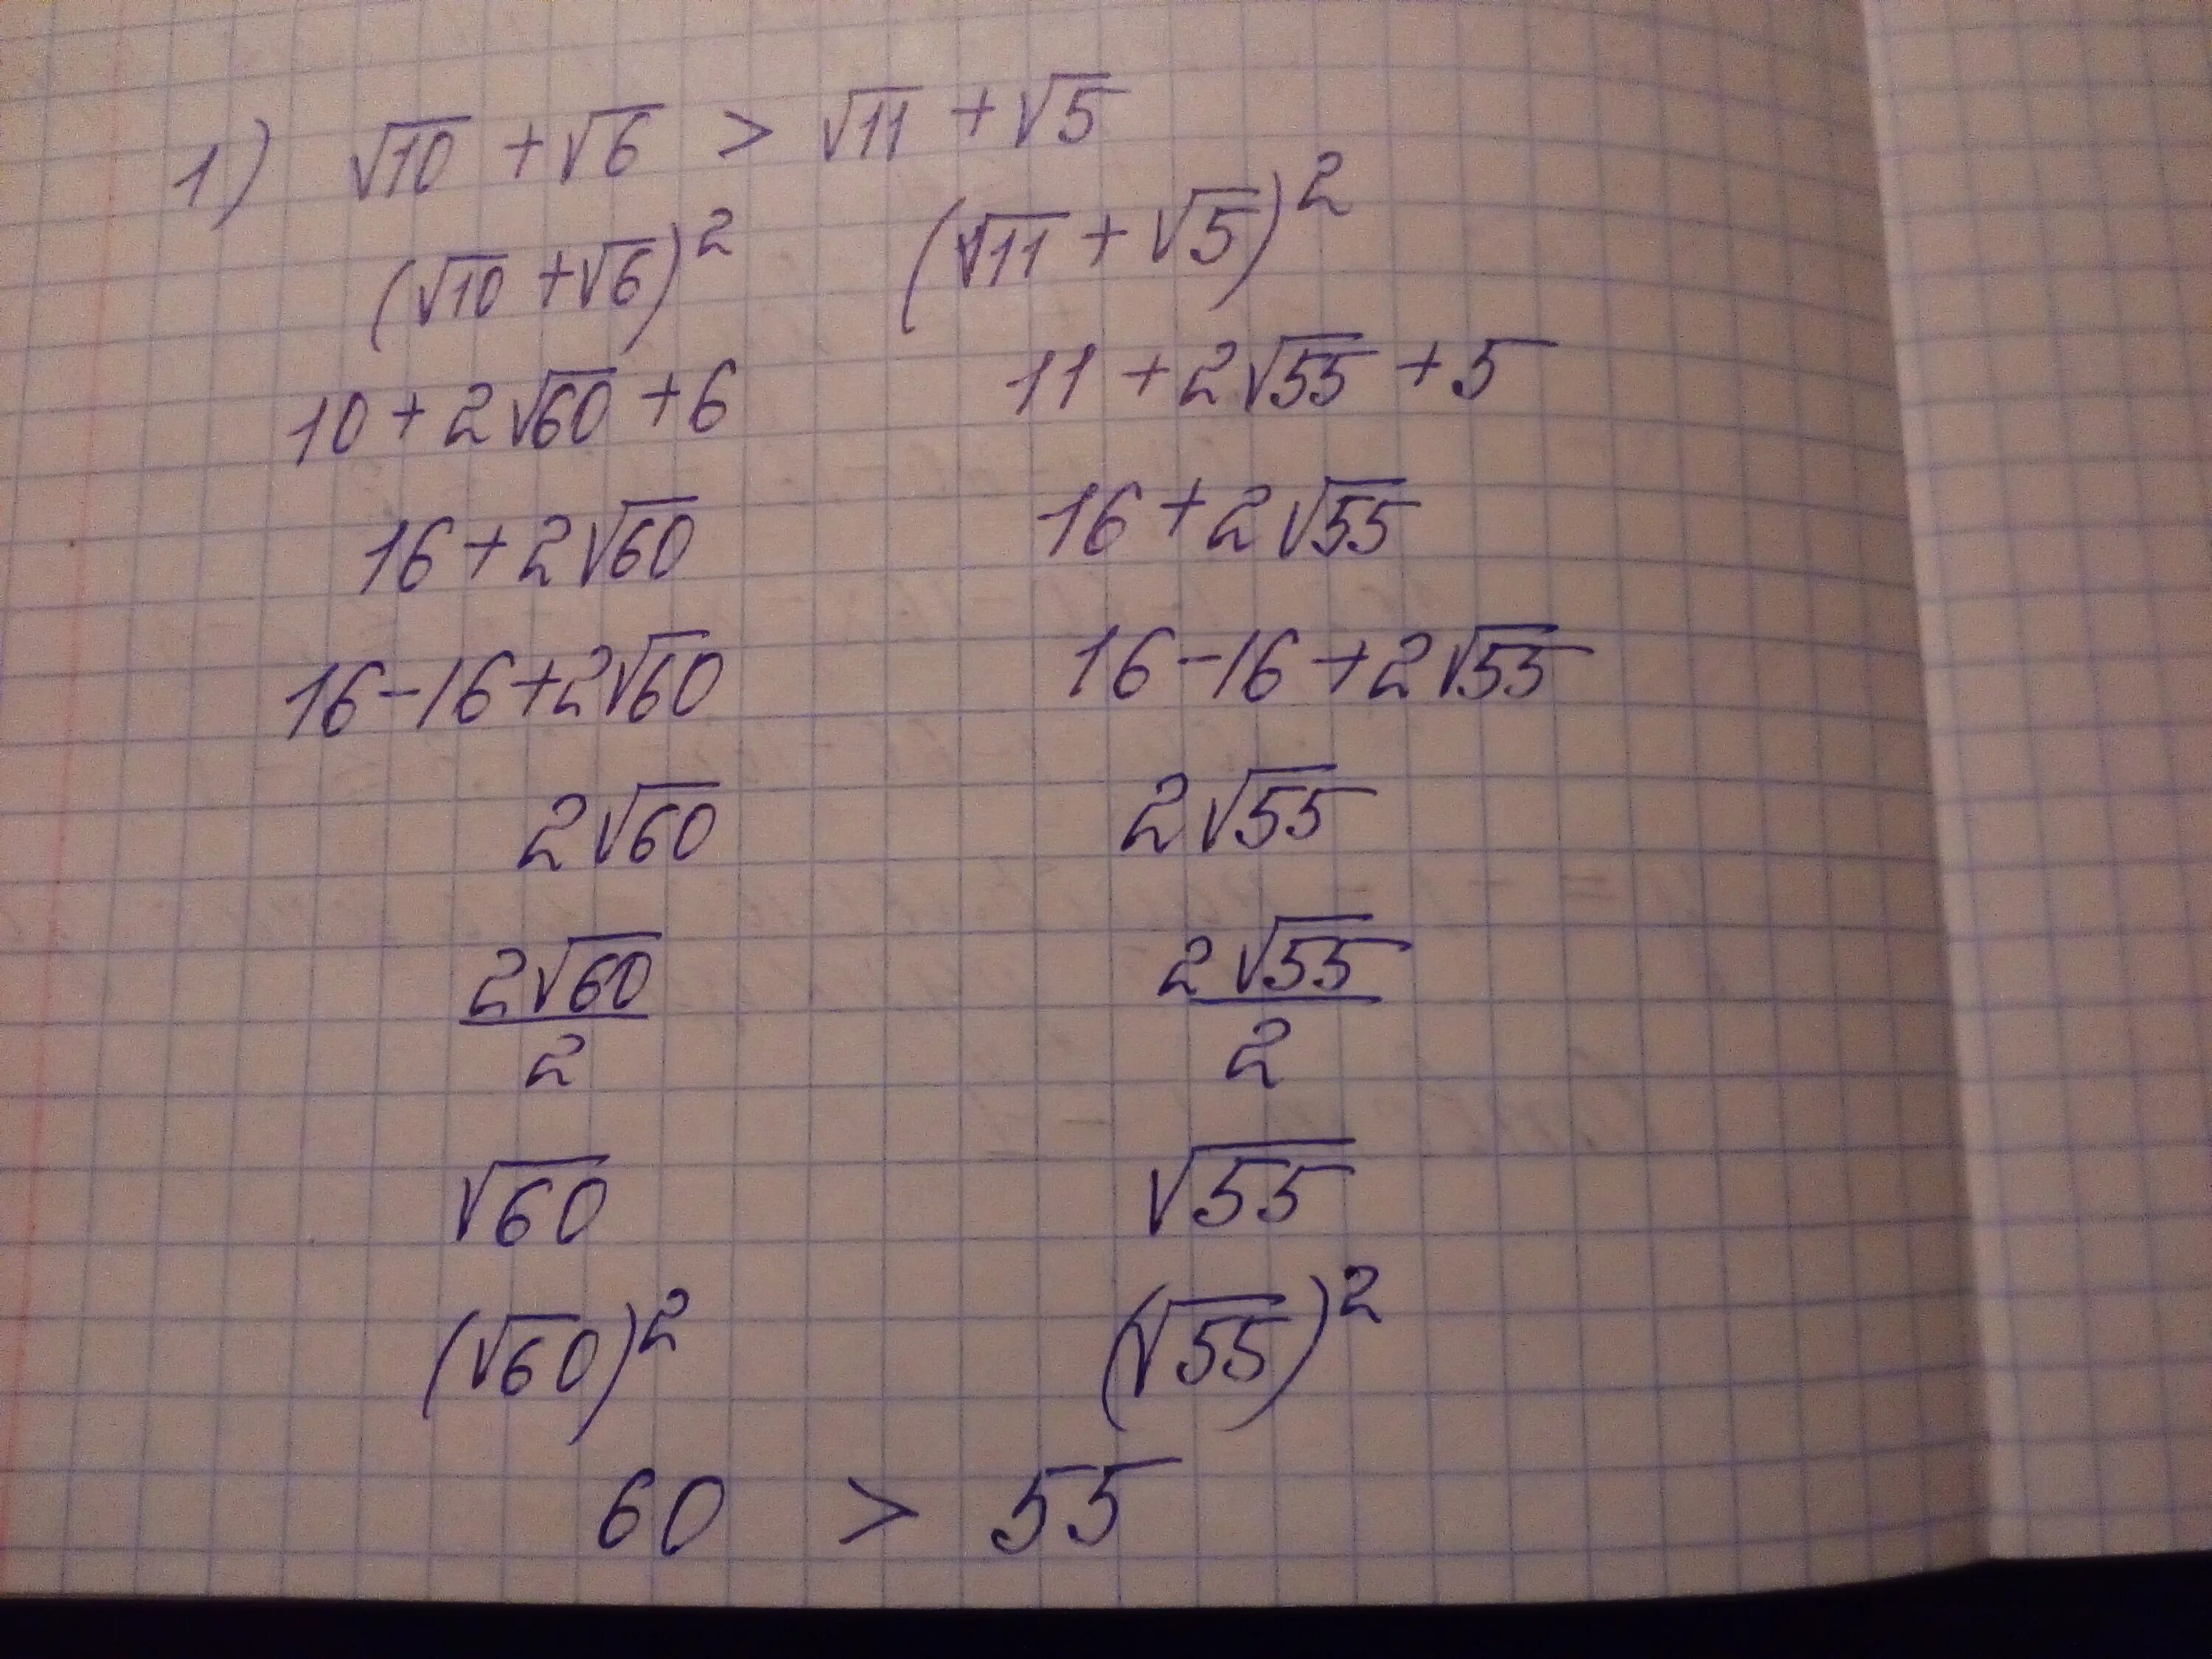 1) √10 + √6 > √11 + √5
(√10 + √6)² (√11 + √5)²
10 + 2√60 + 6 11 + 2√55 + 5
16 + 2√60 16 + 2√55
16 - 16 + 2√60 16 - 16 + 2√55
2√60 2√55
2√60/2 2√55/2
√60 √55
(√60)² (√55)²
60 > 55